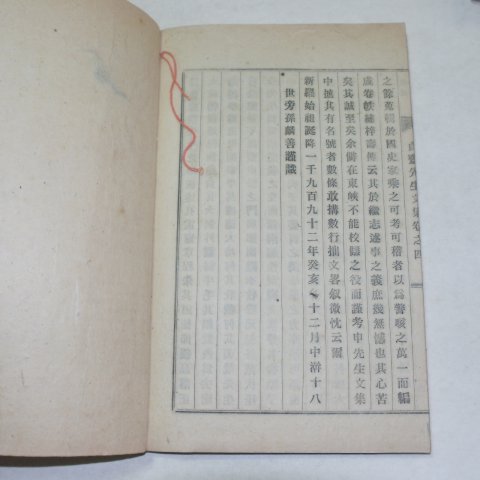 先生文集卷之四
之餘蒐輯於國史家乘之可考可稽者以爲謦咳之萬一而編
成卷帙繡梓壽傳云其於繼志述事之義庶幾無憾也其心苦
矣其誠至矣余僑在東峽不能校讎之役而謹考申先生文集
中摭其有名號者數條敢搆數行拙文畧叙微忱云爾
新羅始祖誕降一千九百九十二年癸亥十二月中澣十八
世旁孫麟善謹識